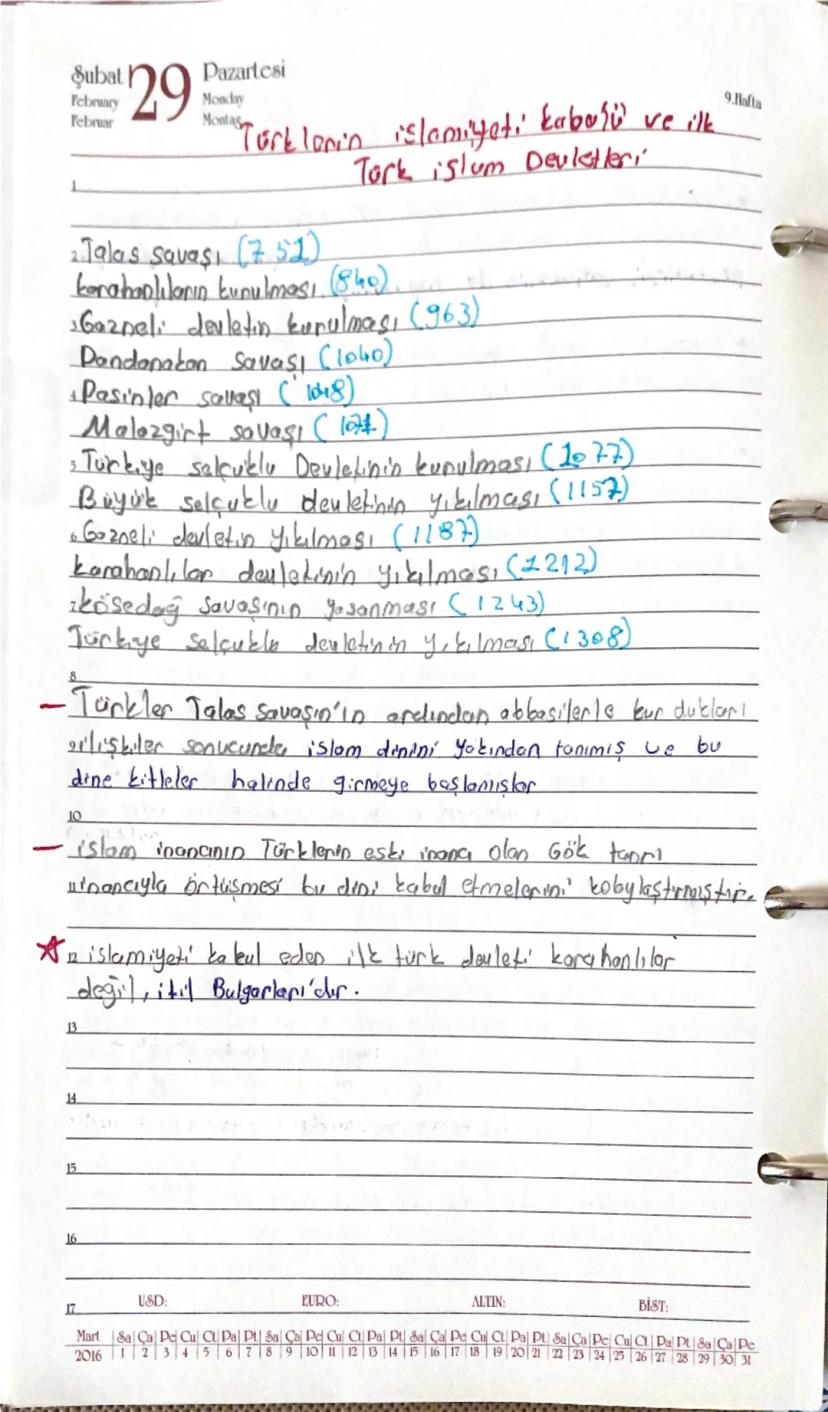 Şubat 29 Pazartesi
February Monday
Februar Montag
9.Hafta
Türklerin islamiyeti kabulü ve ilk
Türk islam Devletleri
1
2 Talas savaşı (751)
karahanlıların kurulması (840)
3 Gazneli devletin kurulması (963)
Dandanakan savaşı (1040)
4 Pasinler savaşı (1048)
Malazgirt savaşı (1071)
5 Türkiye selçuklu Devletinin kurulması (1077)
Büyük selçuklu devletinin yıkılması (1157)
6 Gazneli devletin yıkılması (1187)
karahanlılar devletinin yıkılması (1212)
7 kösedağ savaşının yaşanması (1243)
Türkiye selçuklu devletinin yıkılması (1308)
8
- Türkler Talas savaşın'ın ardından abbasilerle kurdukları
9 ilişkiler sonucunda islam dinini yakından tanımış ve bu
dine kitleler halinde girmeye başlamışlar
10
- islam inancının Türklerin eski inancı olan Gök tanrı
11 inancıyla örtüşmesi bu dini kabul etmelerini kolaylaştırmıştır.
12 islamiyeti kabul eden ilk türk devleti karahanlılar
değil, itil Bulgarları'dır.
13
14
15
16
17 USD: EURO: ALTIN: BİST:
Mart Sa Ça Pe Cu Ct Pa Pt Sa Ça Pe Cu Ct Pa Pt Sa Ça Pe Cu Ct Pa Pt Sa Ça Pe Cu Ct Pa Pt Sa Ça Pe
2016 1 2 3 4 5 6 7 8 9 10 11 12 13 14 15 16 17 18 19 20 21 22 23 24 25 26 27 28 29 30 31